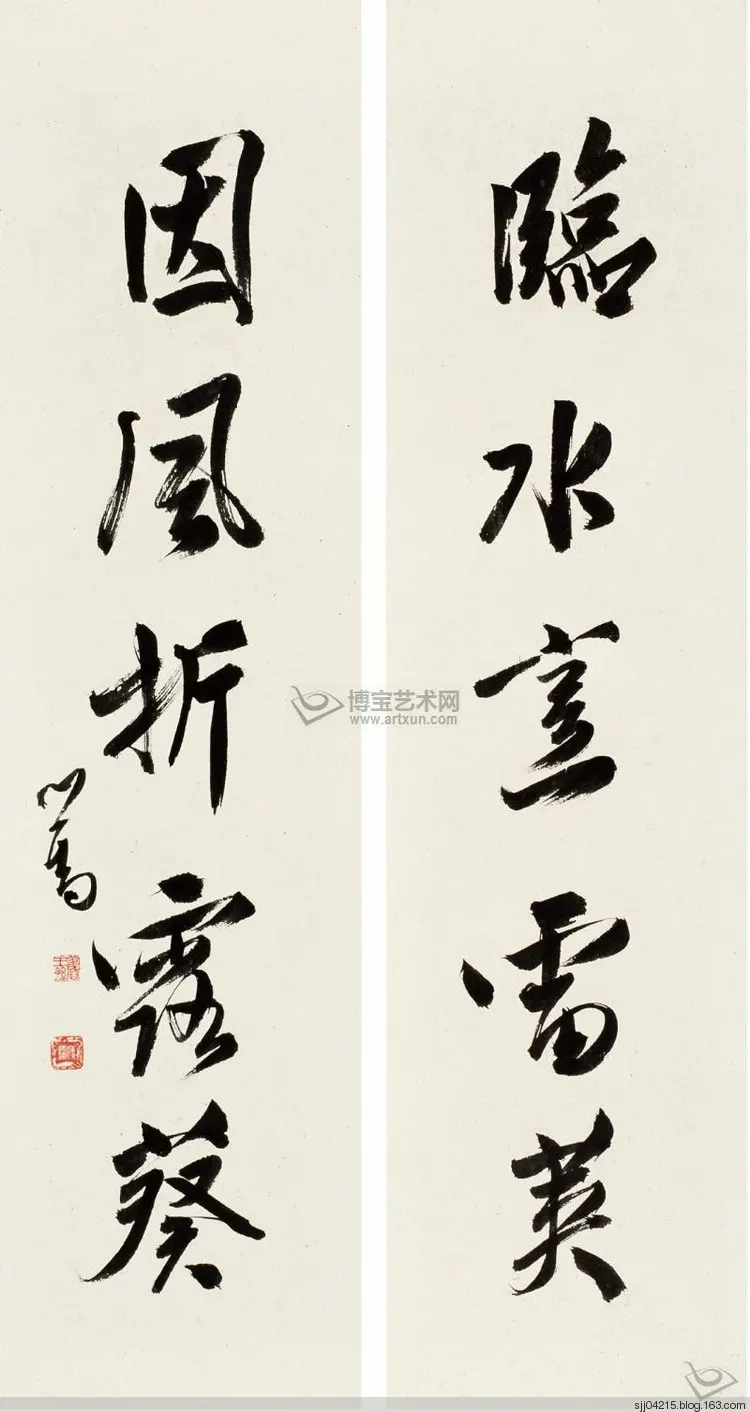 臨水烹雷莢
因風折露葵
心畬
博宝艺术网
www.artxun.com
sjj04215.blog.163.com